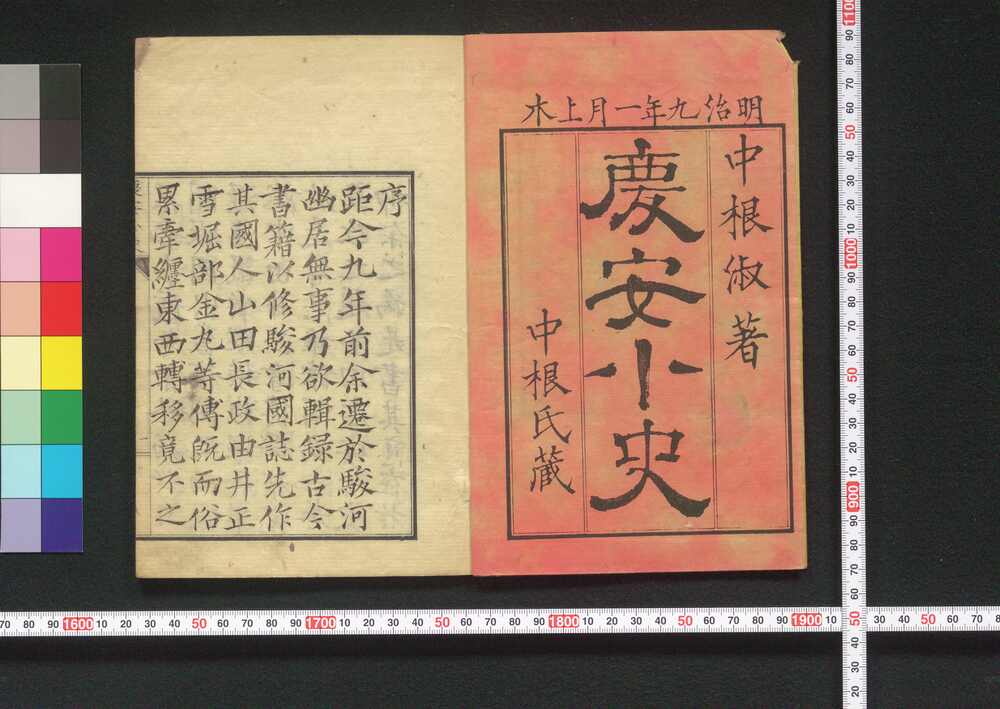 明治九年一月上木
中根淑著
慶安小史
中根氏蔵
序
距今九年前余遷於駿河
幽居無事乃欲輯録古今
書籍以修駿河國誌先作
其國人山田長政由井正
雪堀部金丸等傳既而俗
累牽纏東西轉移竟不之